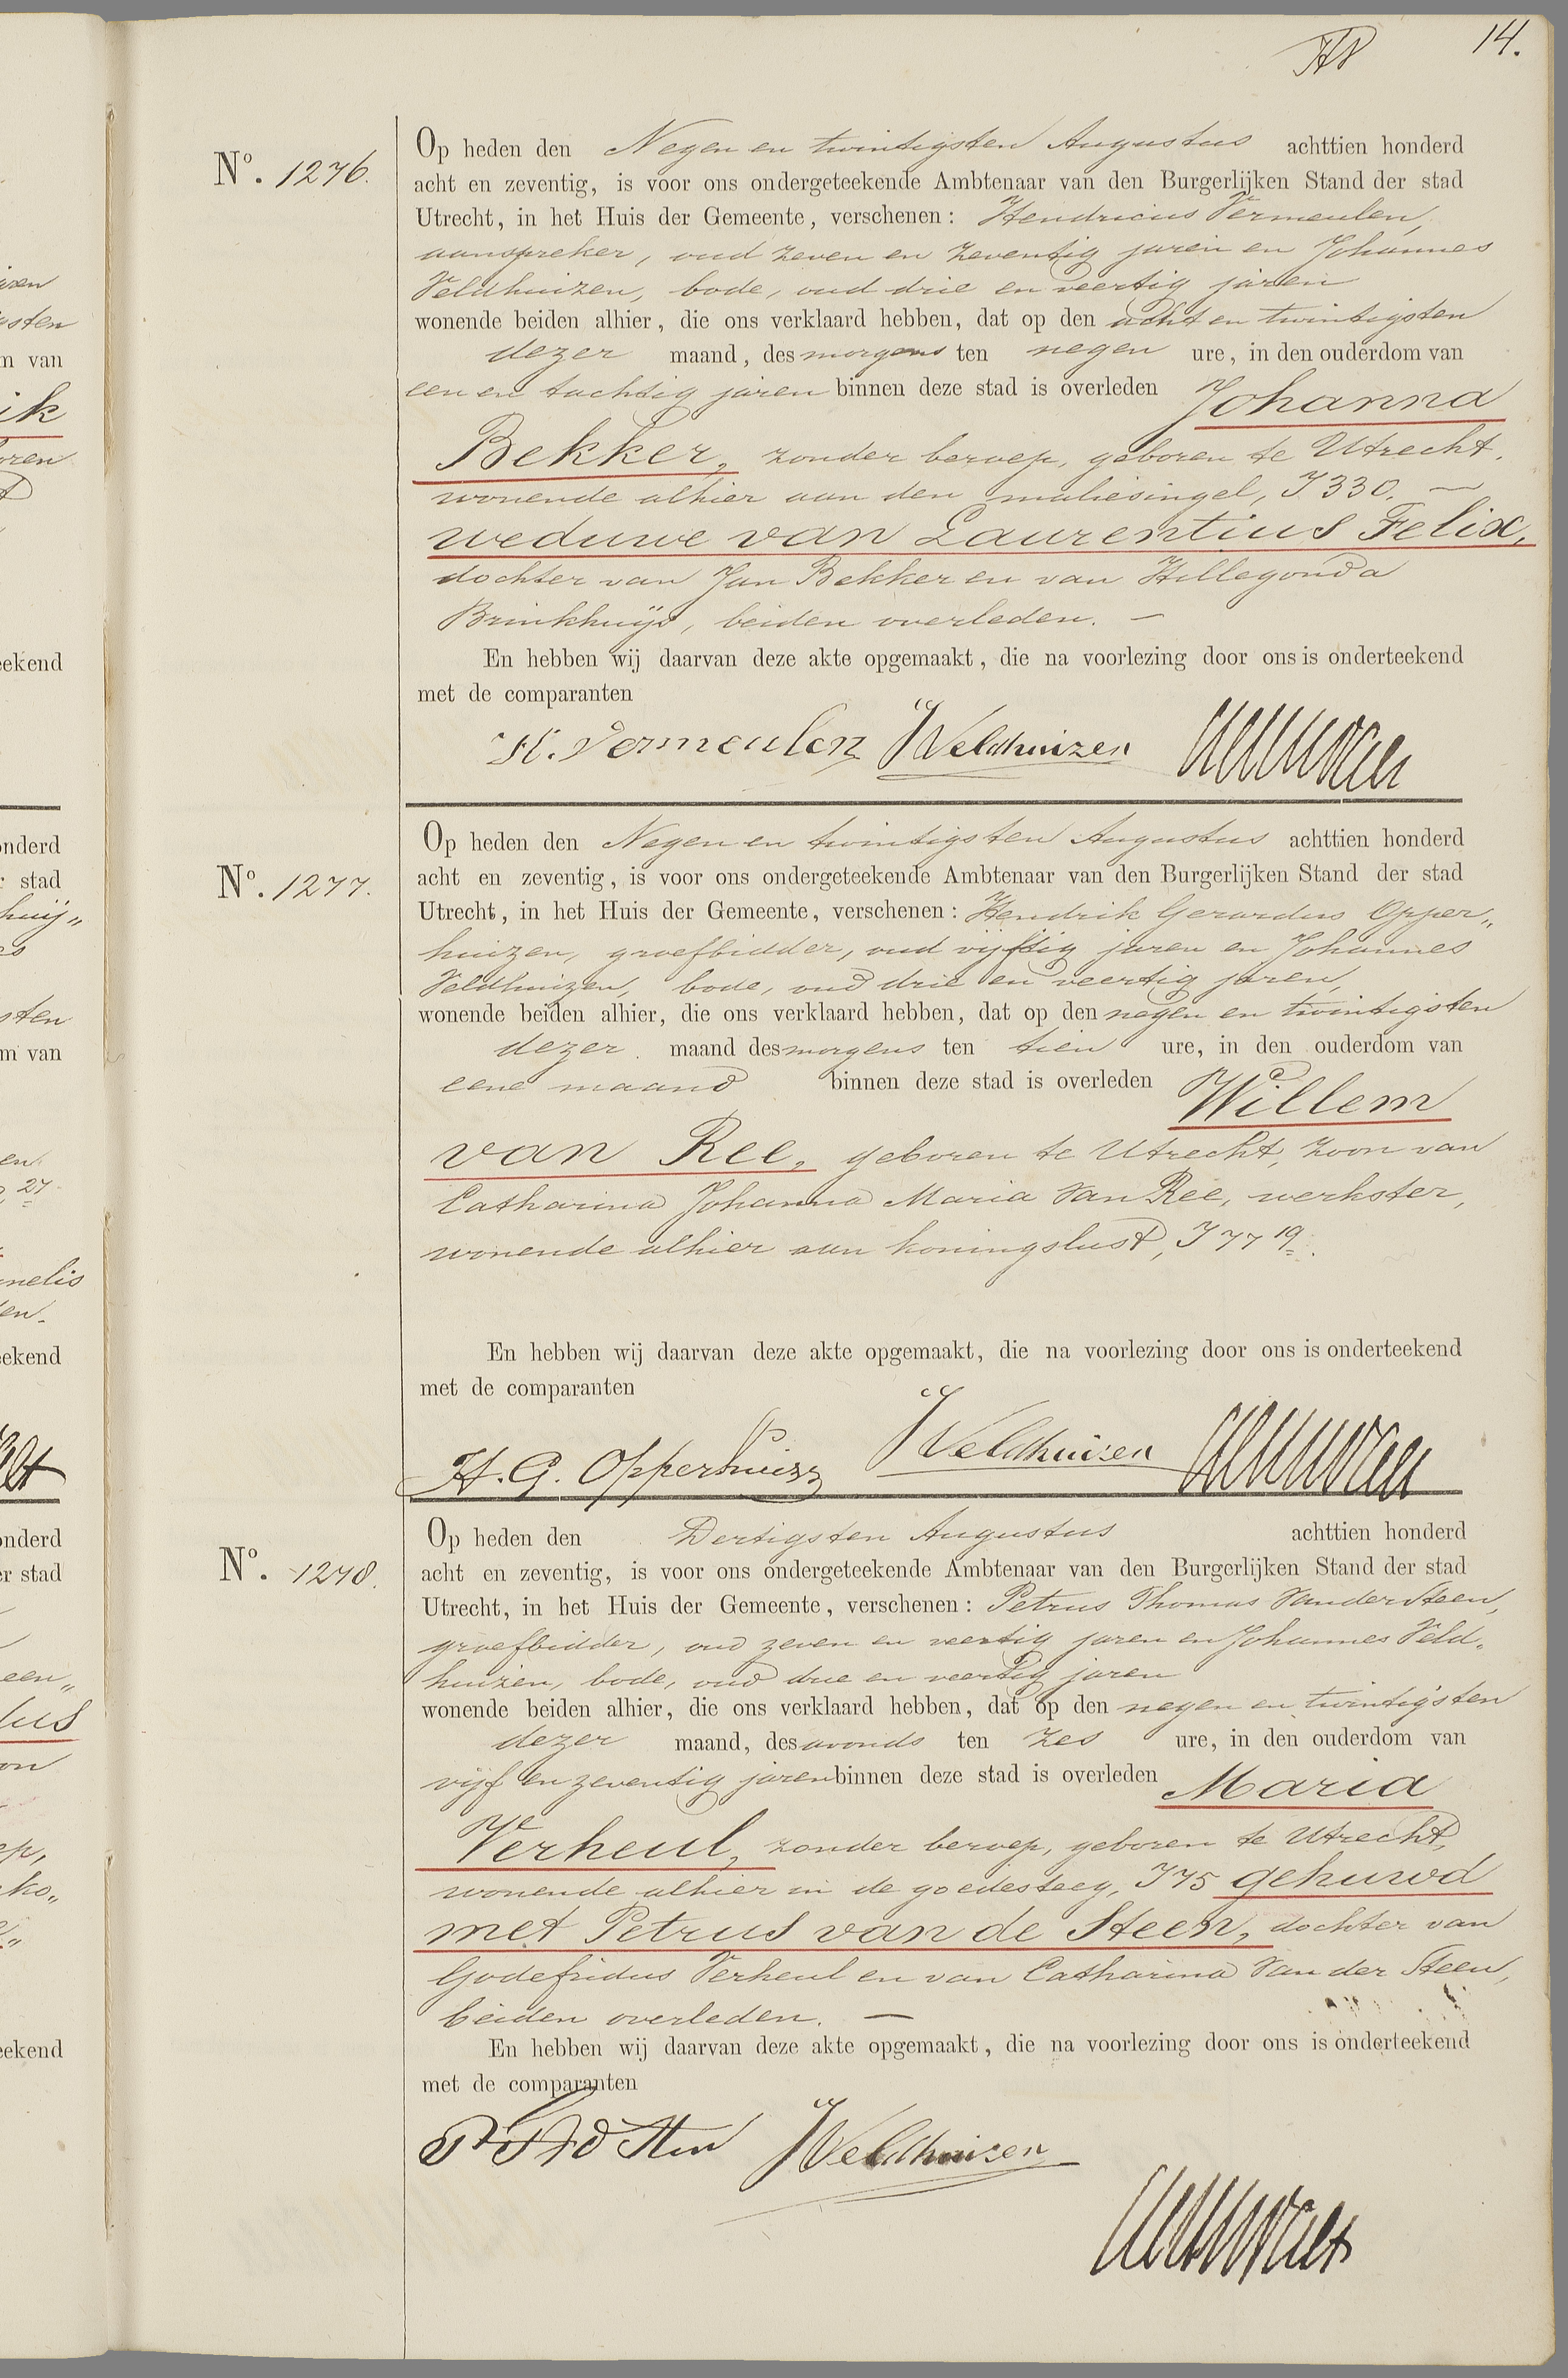 14.
No. 1276.
Op heden den Negen en twintigsten Augustus achttien honderd
acht en zeventig, is voor ons ondergeteekende Ambtenaar van den Burgerlijken Stand der stad
Utrecht, in het Huis der Gemeente, verschenen: Hendricus Vermeulen,
aanspreker, oud zeven en zeventig jaren en Johannes
Veldhuizen, bode, oud drie en veertig jaren
wonende beiden alhier, die ons verklaard hebben, dat op den acht en twintigsten
dezer maand, des morgens ten negen ure, in den ouderdom van
een en tachtig jaren binnen deze stad is overleden Johanna
Bekker, zonder beroep, geboren te Utrecht,
wonende alhier aan den maliesingel, I 330. —
weduwe van Laurentius Felix,
dochter van Jan Bekker en van Hillegonda
Brinkhuijs, beiden overleden. —
En hebben wij daarvan deze akte opgemaakt, die na voorlezing door ons is onderteekend
met de comparanten
H. Vermeulen JVeldhuizen
No. 1277.
Op heden den Negen en twintigsten Augustus achttien honderd
acht en zeventig, is voor ons ondergeteekende Ambtenaar van den Burgerlijken Stand der stad
Utrecht, in het Huis der Gemeente, verschenen: Hendrik Gerardus Opper„
huizen, groefbidder, oud vijftig jaren en Johannes
Veldhuizen, bode, oud drie en veertig jaren,
wonende beiden alhier, die ons verklaard hebben, dat op den negen en twintigsten
dezer maand des morgens ten tien ure, in den ouderdom van
eene maand binnen deze stad is overleden Willem
van Ree, geboren te Utrecht, zoon van
Catharina Johanna Maria Van Ree, werkster,
wonende alhier aan koningslust, I 77 19.
En hebben wij daarvan deze akte opgemaakt, die na voorlezing door ons is onderteekend
met de comparanten
H. G. Opperhuizen JVeldhuizen
No. 1278.
Op heden den Dertigsten Augustus achttien honderd
acht en zeventig, is voor ons ondergeteekende Ambtenaar van den Burgerlijken Stand der stad
Utrecht, in het Huis der Gemeente, verschenen: Petrus Thomas Van der Steen,
groefbidder, oud zeven en veertig jaren en Johannes Veld„
huizen, bode, oud drie en veertig jaren
wonende beiden alhier, die ons verklaard hebben, dat op den negen en twintigsten
dezer maand, des avonds ten zes ure, in den ouderdom van
vijf en zeventig jaren binnen deze stad is overleden Maria
Verheul, zonder beroep, geboren te Utrecht,
wonende alhier in de goedesteeg, I 75 gehuwd
met Petrus van de Steen, dochter van
Godefridus Verheul en van Catharina Van der Steen,
beiden overleden. —
En hebben wij daarvan deze akte opgemaakt, die na voorlezing door ons is onderteekend
met de comparanten
JVeldhuizen